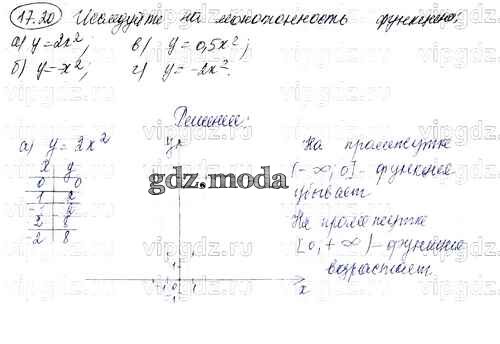 17.20 Исследуйте на монотонность функцию:
а) y=2x², в) y=0,5x²;
б) y=-x²; г) y=-2x².
Решение:
а) y=2x²
x y
0 0
1 2
-1 2
2 8
-2 8
y
1
-1 0 1
-1
x
На промежутке
(-∞; 0] - функция
убывает
На промежутке
[0; +∞) - функция
возрастает.
gdz.moda
vipgdz.ru